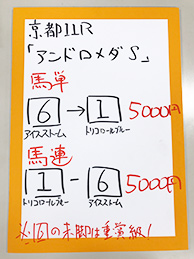 京都11R
「アンドロメダS」
馬単
6→1 5000円
アイスストーム トリコロールブルー
馬連
1-6 5000円
トリコロールブルー アイスストーム
の末脚は重賞級!